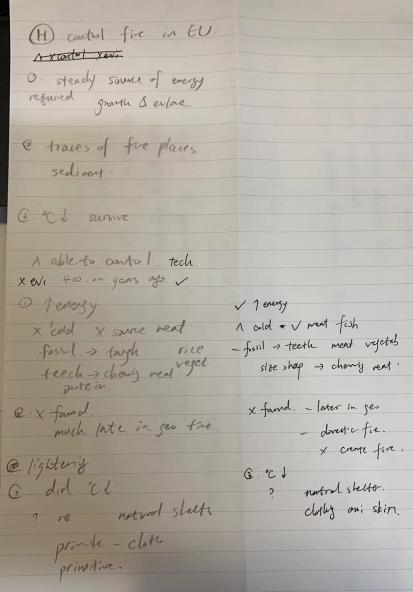 (H) control fire in EU.
① steady source of energy
required growth & evlove
② traces of fire places
sediment.
③ °C↓ survive
∧ able to control tech
x evi 400.00 years ago ✓
① ↑energy
x cold x source meat
fossil → tough rice
teech → chewy meat veget
protein
② x found.
much late in geo time
② lightening
③ did °C↓
? natural shelts
private - cloth
primitive.
✓ ↑energy
∧ cold ✓ meat fish
- fossil → teeth meat vegetab
size shap → chewy meat.
x found. - later in geo
- domestic fire.
x create fire.
③ °C↓
? natural shelter.
clothy ani skin.